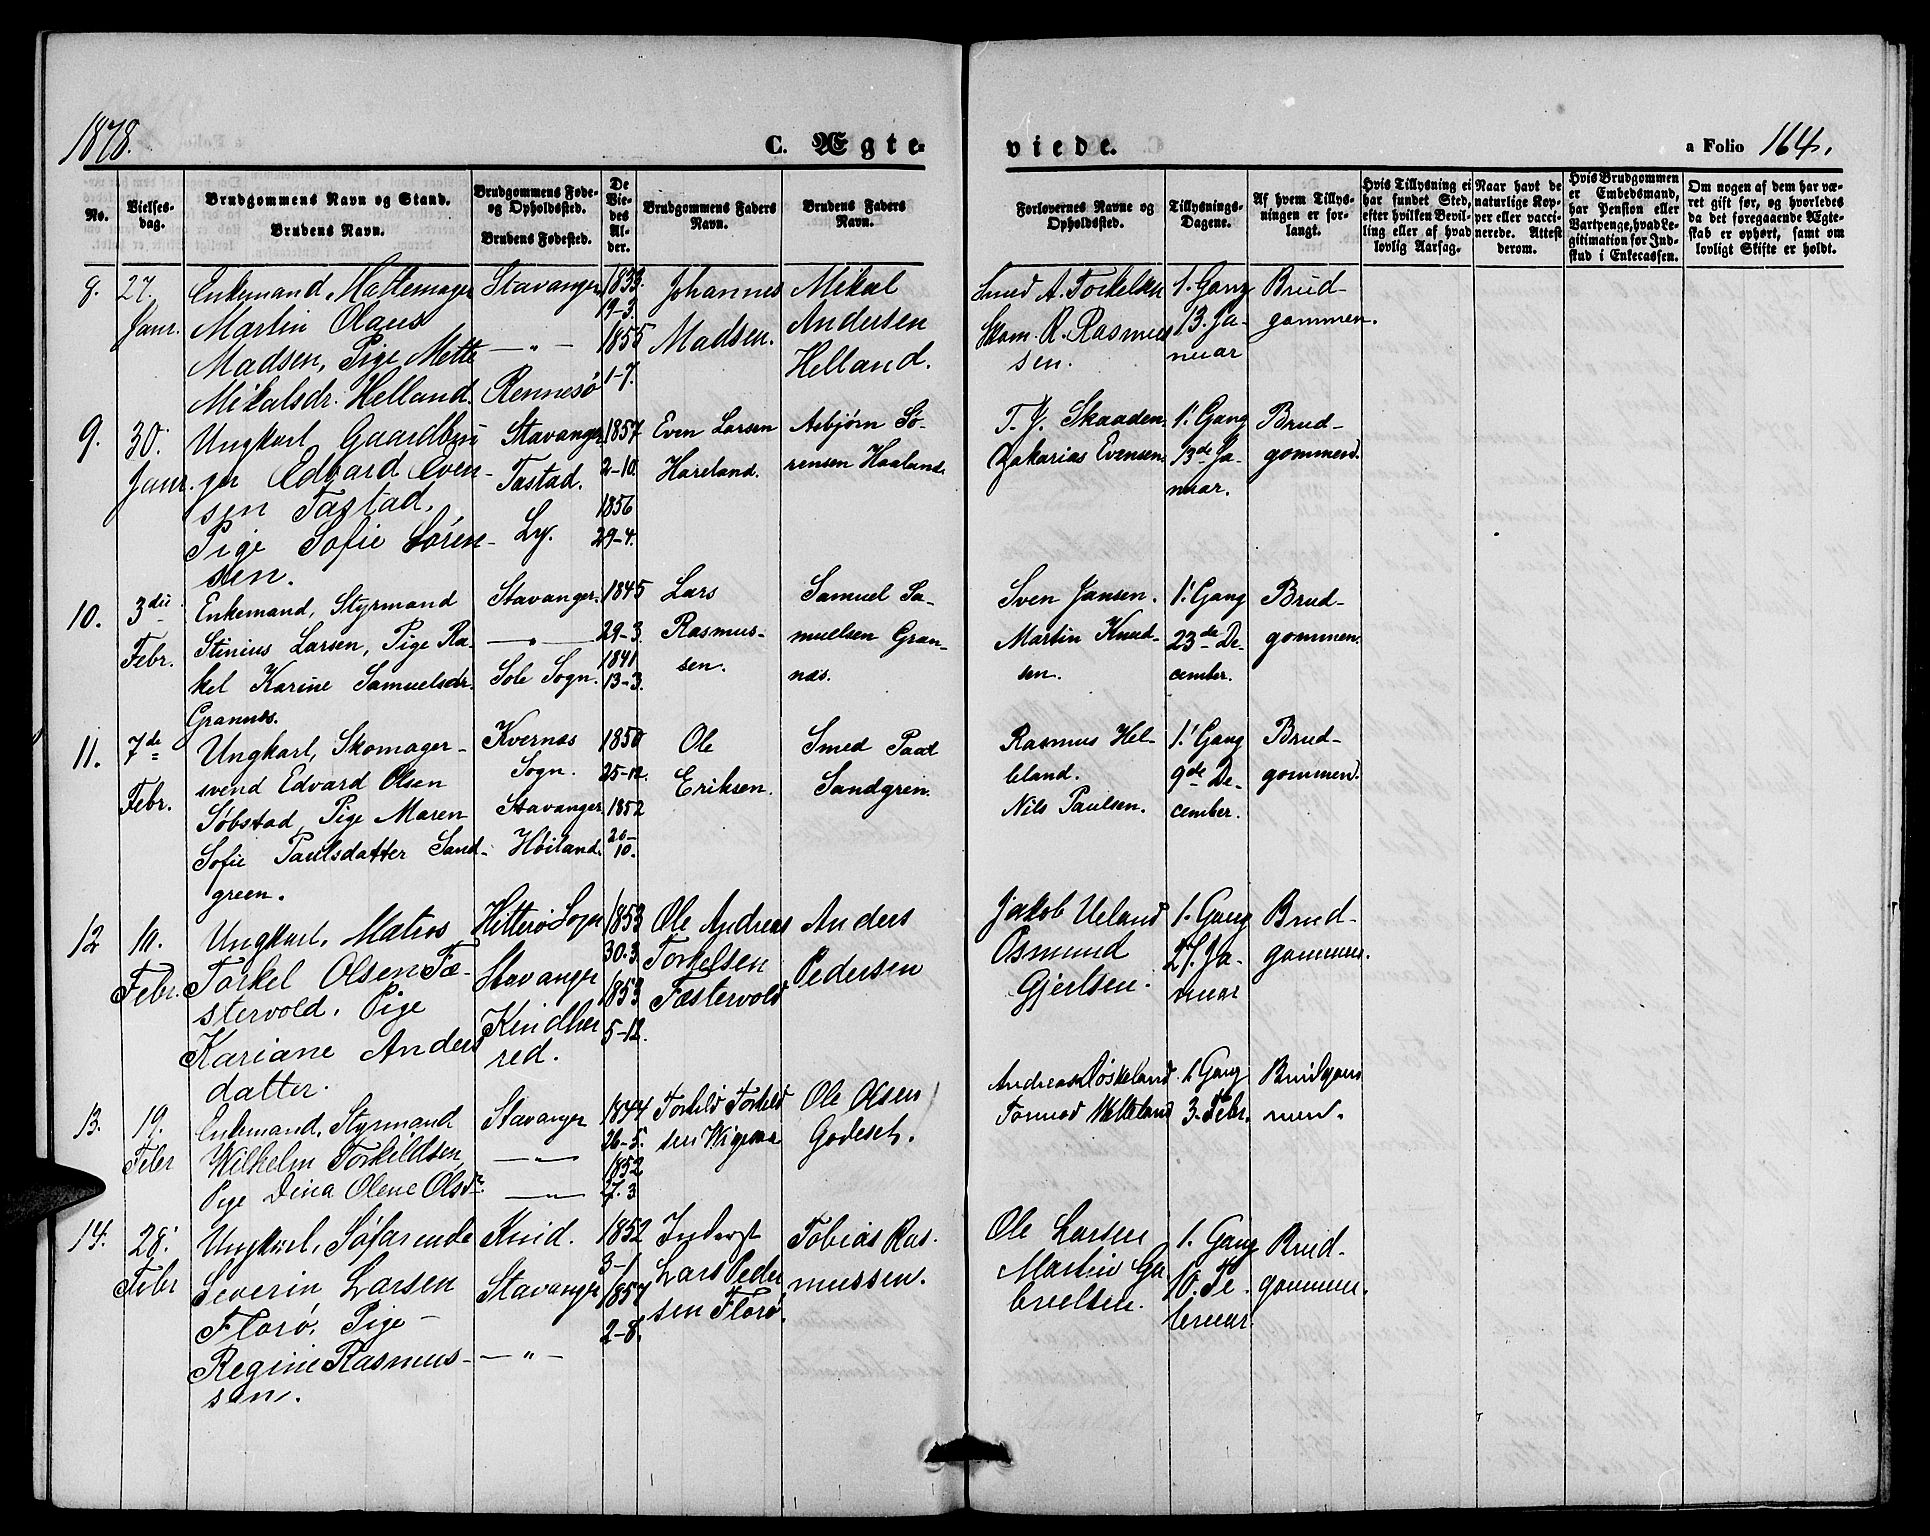 1878.
C. Ægte-
viede.
a Folio 164.
No.
Vielses-
dag.
Brudgommens Navn og Stand.
Brudens Navn.
Brudgommens Føde-
og Opholdssted.
Brudens Fødested.
De
Vie-
des
Al-
der.
Brudgommens Faders
Navn.
Brudens Faders
Navn.
Forlovernes Navne og
Opholdssted.
Tillysnings-
Dagene.
Af hvem Tillys-
ningen er for-
langt.
Hvis Tillysning ei
har fundet Sted,
efter hvilken Bevil-
ling eller af hvad
lovlig Aarsag.
Naar havt de
naturlige Kop-
per eller vacci-
nerede. Attest
derom.
Hvis Brudgommen
er Embedsmand,
har Pension eller
Vartpenge, hvad Le-
gitimation for Ind-
skud i Enkecassen.
Om nogen af dem har væ-
ret gift før, og hvorledes
da det foregaaende Ægte-
skab er ophørt, samt om
lovligt Skifte er holdt.
8.
27.
Janr.
Enkemand, Hattemager
Martin Olaus
Madsen, Pige Mette
Mikalsdr. Helland.
Stavanger
— " —
Rennesö
1833
19-3.
1855
1-7.
Johannes
Madsen.
Mikal
Andersen
Helland.
Smed A. Torkelsen
Skom. R. Rasmus
sen.
1. Gang
13. Ja-
nuar
Brud-
gommen.
9.
30.
Janr.
Ungkarl, Gaardbru-
ger Edvard Even-
sen Tastad,
Pige Sofie Sören-
sen.
Stavanger
Tastad.
Ly.
1857
2-10.
1856
29-4.
Even Larsen
Hareland.
Asbjørn Sö-
rensen Haaland.
T. J. Skaaden
Zakarias Evensen.
1. Gang
13de Ja-
nuar.
Brud-
gommen.
10.
3die
Febr.
Enkemand, Styrmand
Stinius Larsen, Pige Ra-
kel Karine Samuelsdr.
Grannes.
Stavanger.
— " —
Sole Sogn.
1845
29-3.
1841
13-3.
Lars
Rasmus-
sen.
Samuel Sa-
muelsen Gran-
nes.
Sven Jansen.
Martin Knud-
sen.
1. Gang
23de De-
cember.
Brud-
gommen.
11.
7de
Febr.
Ungkarl, Skomager-
svend Edvard Olsen
Söbstad, Pige Maren
Sofie Paulsdatter Sand-
green.
Kvernes
Sogn.
Stavanger
Höiland.
1850
25-12.
1852
20-
10.
Ole
Eriksen.
Smed Paal
Sandgren.
Rasmus Hel-
leland.
Nils Paulsen.
1. Gang
9de De-
cember.
Brud-
gommen.
12
10.
Febr.
Ungkarl, Matros
Torkel Olsen Fæ-
stervold, Pige
Kariane Anders
datter.
Hitterö Sogn
Stavanger
Kindher
red.
1853
30.3.
1853
5-12.
Ole Andreas
Torkelsen
Fæstervold
Anders
Pedersen
Jakob Ueland
Osmund
Gjertsen.
1. Gang
27. Ja-
nuar
Brud-
gommen.
13.
19.
Febr
Enkemand, Styrmand
Wilhelm Torkildsen,
Pige Dina Olene Olsdr.
Stavanger
— " —
— " —
1844
26-5.
1852
7.3
Torkild Torkild
sen
Ole Olsen
Godeset.
Andreas
Tormod Helleland
1. Gang
3. Febr.
Brudgom
men.
14.
28.
Febr
Ungkarl, Söfarende
Severin Larsen
Florö, Pige
Regine Rasmus-
sen.
Kind.
Stavanger
— " —
1852
3-1
1857
2-8.
Inderst
Lars Peder
sen Florö.
Tobias Ras-
mussen.
Ole Larsen
Martin Ga
brielsen.
1. Gang
10. Fe
bruar.
Brud-
gommen.